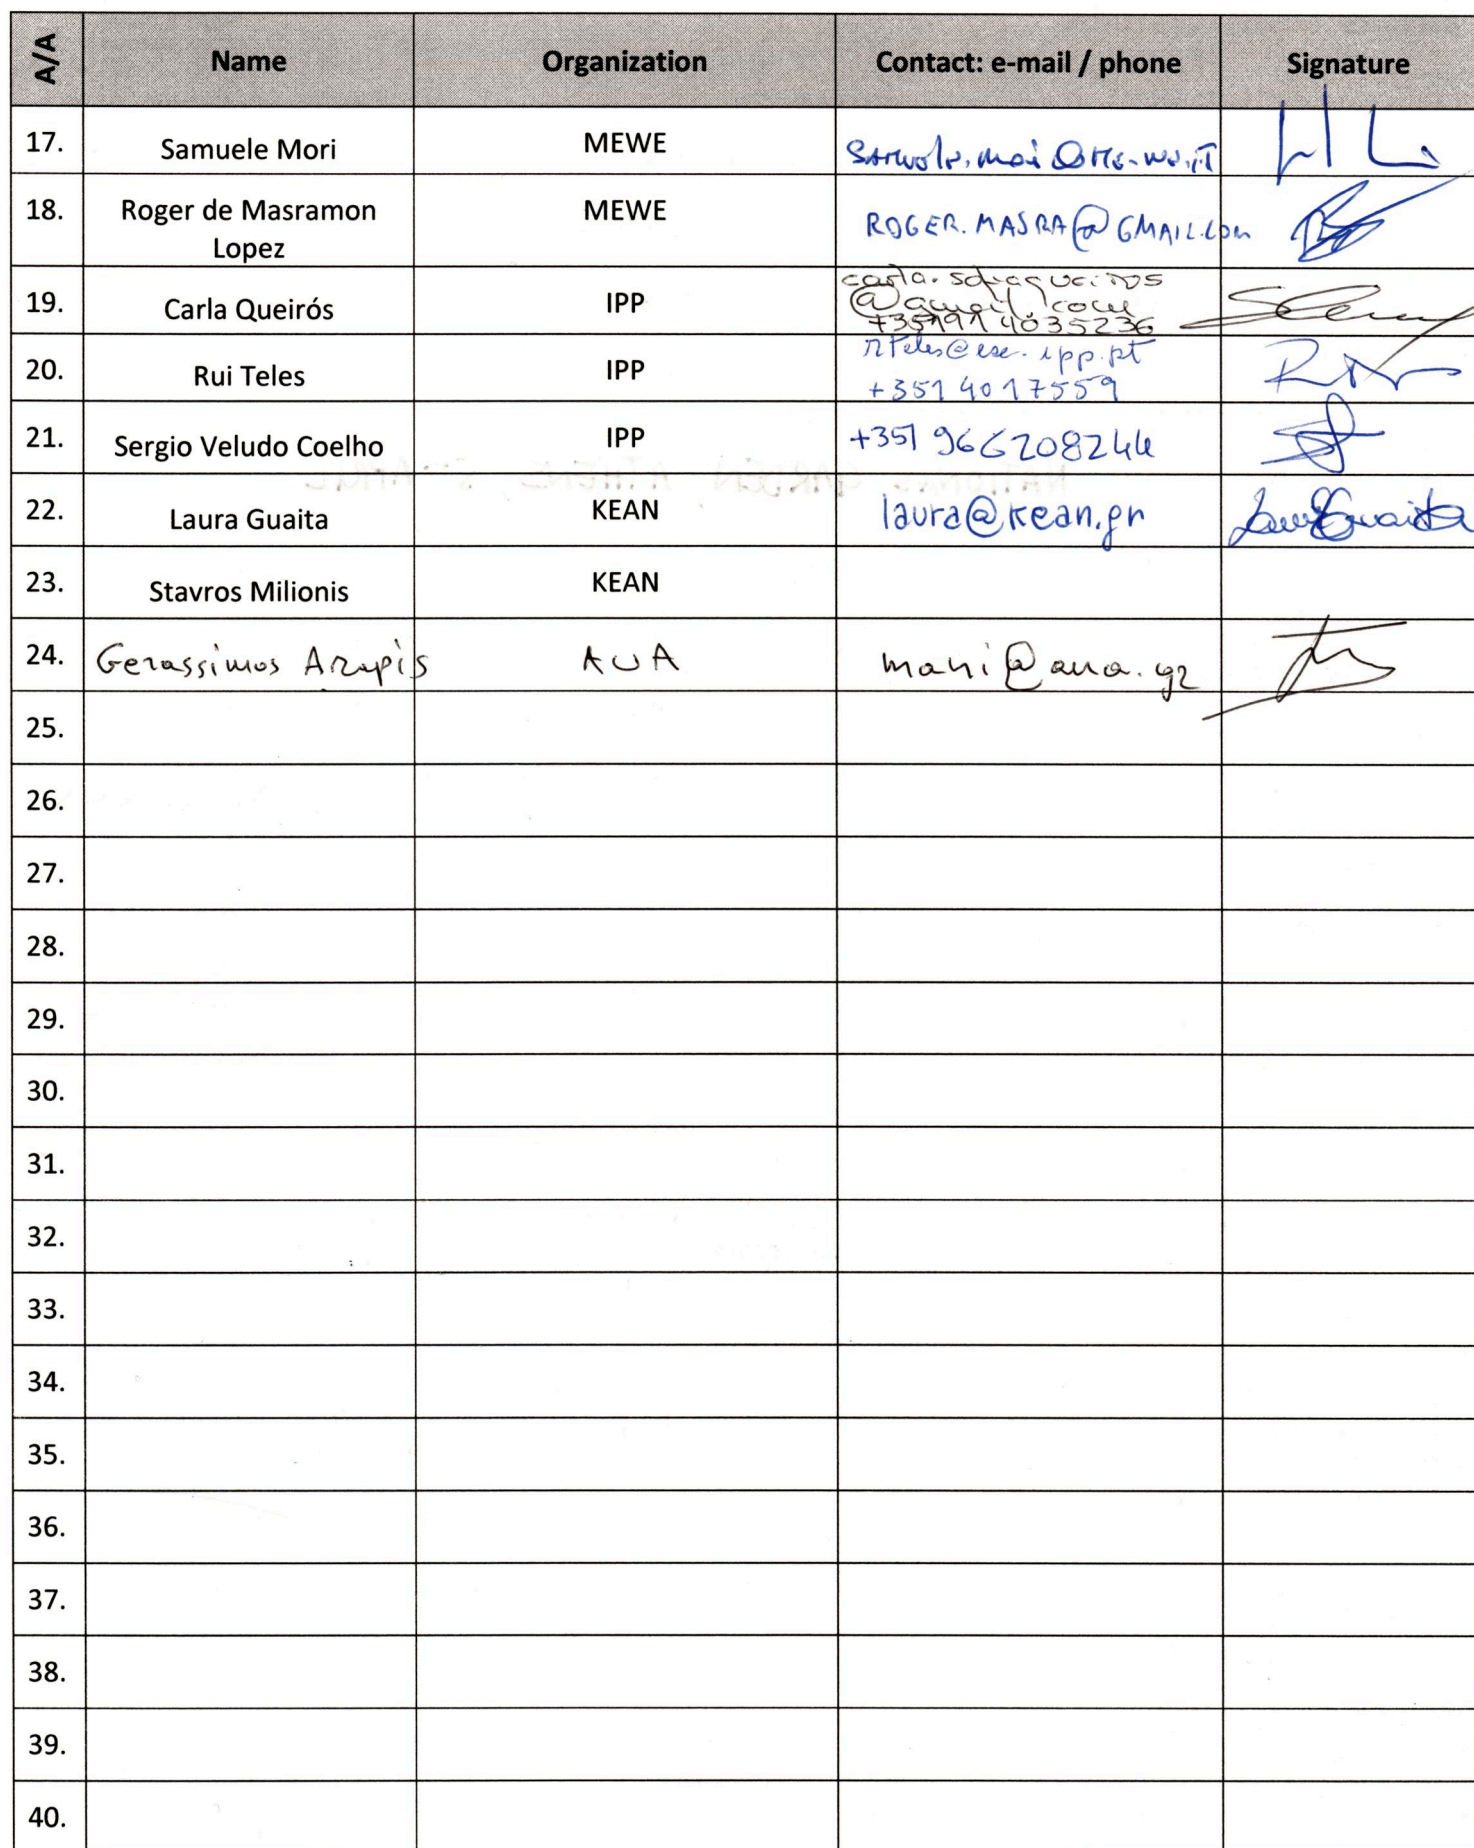 A/A Name Organization Contact: e-mail / phone Signature
17. Samuele Mori MEWE
18. Roger de Masramon MEWE ROGER.MASRA@GMAIL.COM
Lopez
19. Carla Queirós IPP
@gmail.com
+351914035236
20. Rui Teles IPP rteles@ese.ipp.pt
+351 4017559
21. Sergio Veludo Coelho IPP +351 966208244
22. Laura Guaita KEAN laura@kean.gr Laura Guaita
23. Stavros Milionis KEAN
24. Gerassimos Arapis AUA mani@aua.gr
25.
26.
27.
28.
29.
30.
31.
32.
33.
34.
35.
36.
37.
38.
39.
40.